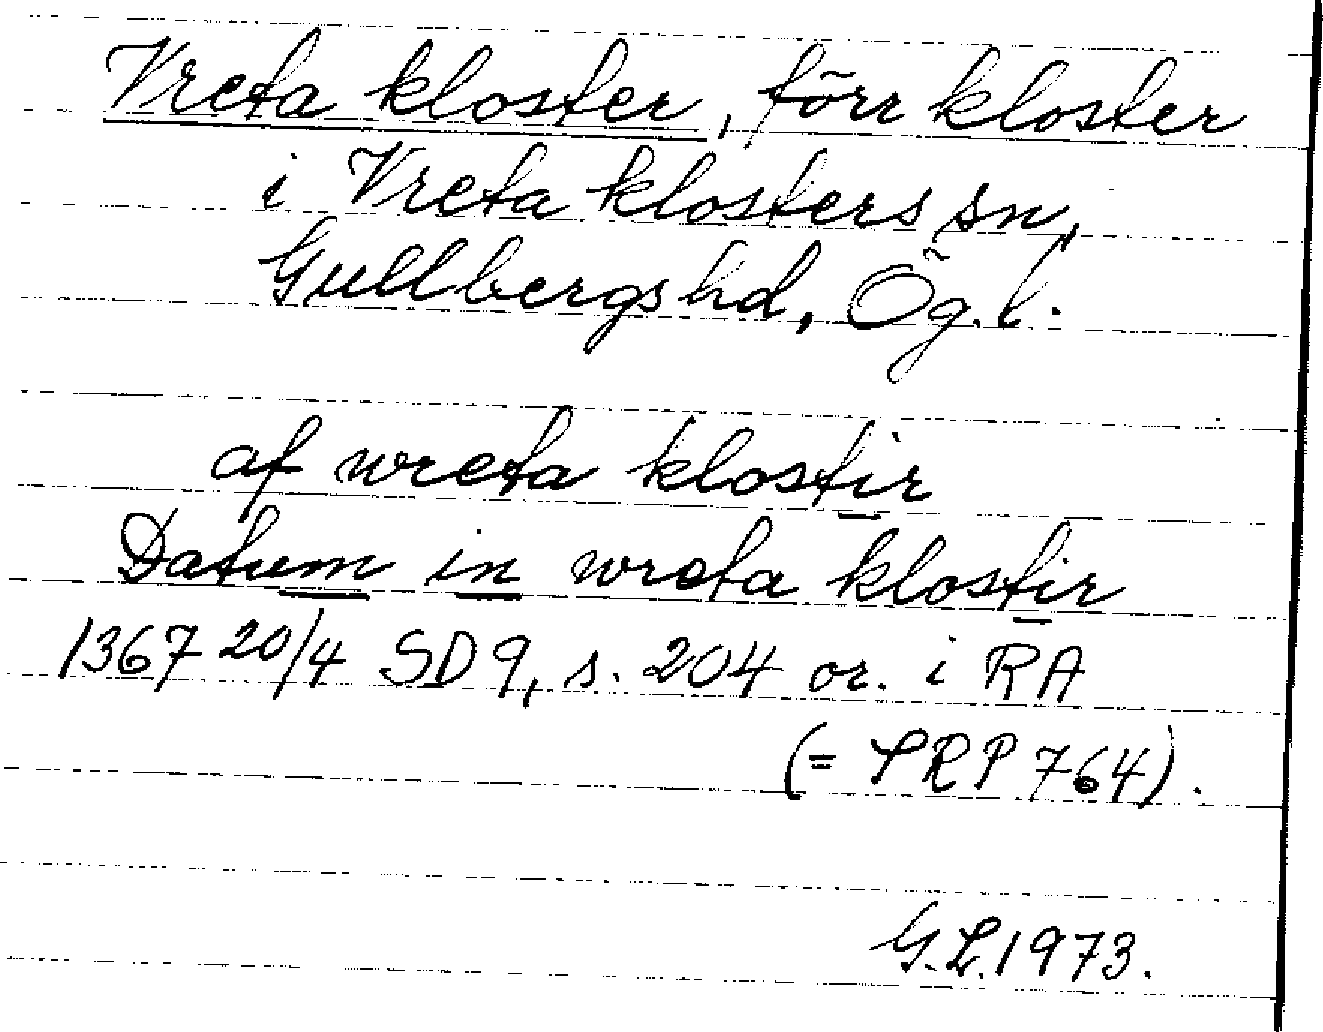 Vreta kloster, förr kloster
i Vreta klosters sn,
Gullbergs hd, Ög. l.
af wreta klostir
Datum in wreta klostir
1367 20/4 SD 9, s. 204 or. i RA
(= SRP 764).
G.L. 1973.